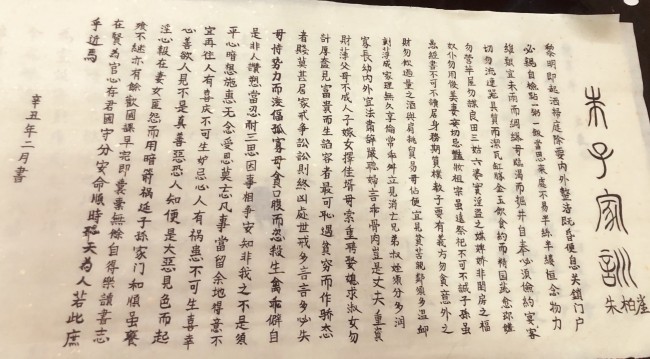 朱子家訓
朱柏庐
黎明即起洒掃庭除要内外整洁既昏便息关鎖门户
必親自檢點一粥一飯當思來處不易半絲半縷恒念物力
維艱宜未雨而綢繆毋臨渴而掘井自奉必須儉約宴客
切勿流連器具質而潔瓦缶勝金玉飲食約而精园蔬愈珍饈
勿營华屋勿謀良田三姑六婆實淫盗之媒婢娇非閨房之福
奴仆勿用俊美妻妾切忌艷妝祖宗虽遠祭祀不可不誠子孫虽
愚經書不可不讀居身務期質樸教子要有義方勿貪意外之
財勿飲過量之酒與肩挑貿易毋佔便宜見貧苦親鄰須多温卹
刻薄成家理無久享倫常乖舛立見消亡兄弟叔姪須分多润
寡長幼内外宜法肅辭嚴聽婦言乖骨肉豈是丈夫重資
財薄父母不成人子嫁女擇佳婿毋索重聘娶媳求淑女勿
計厚奩見富貴而生諂容者最可恥遇貧穷而作骄态
者賤莫甚居家戒爭訟訟則終凶處世戒多言言多必失
毋恃势力而凌偪孤寡毋貪口腹而恣殺生禽乖僻自
是非人讚愬當忍耐三思因事相爭安知非我之不是須
平心暗想施惠无念受恩莫忘凡事當留余地得意不
宜再往人有喜庆不可生妒忌心人有禍患不可生喜幸
心善欲人見不是真善惡恐人知便是大惡見色而起
淫心報在妻女匿怨而用暗箭禍延子孫家门和順虽饔
飧不继亦有餘歡國課早完即囊橐無餘自得樂讀書志
在賢為官心存君國守分安命順時聽天為人若此庶
乎近焉
辛丑年二月書